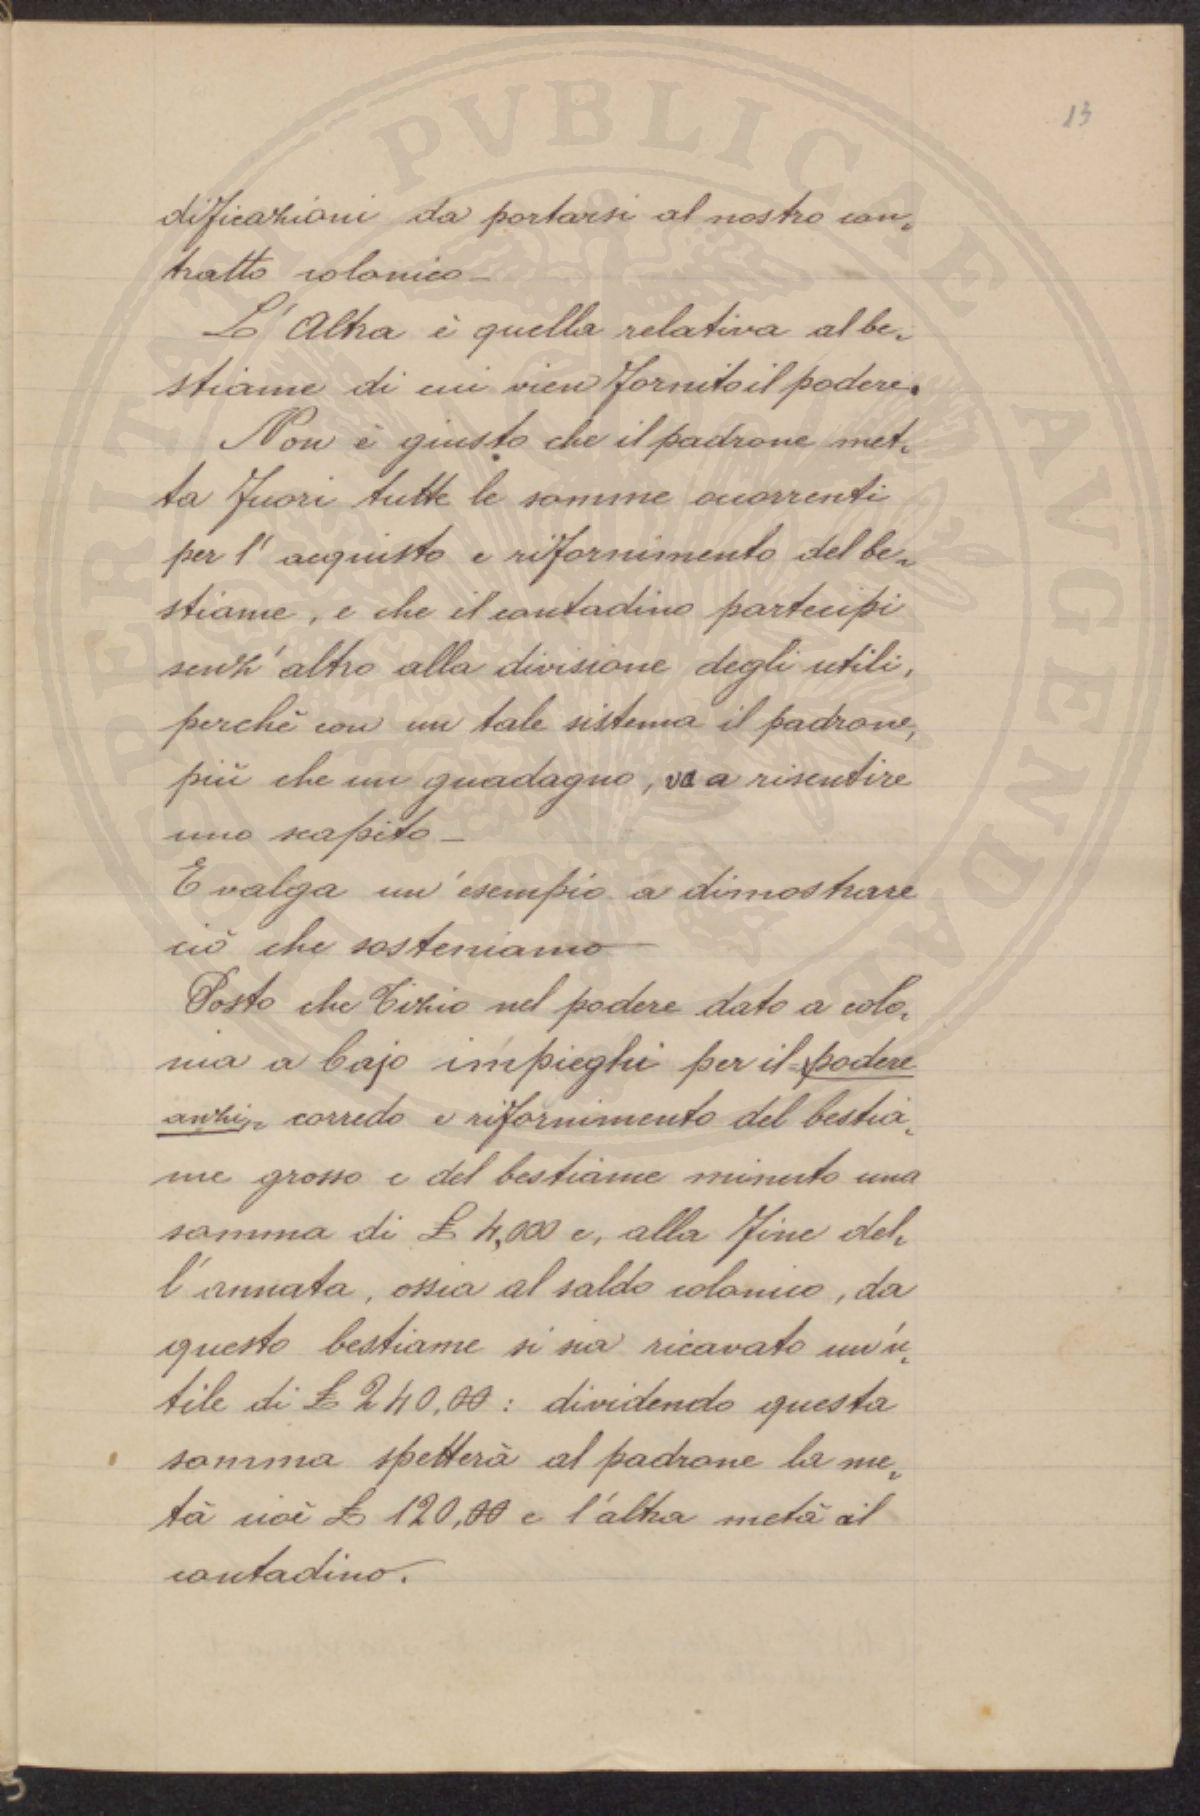 13
PROSPERITATI PVBLICAE AVGENDAE
dificazioni da portarsi al nostro con-
tratto colonico—
L'Altra è quella relativa al be-
stiame di cui vien fornito il podere.
Non è giusto che il padrone met-
ta fuori tutte le somme occorrenti
per l'acquisto e rifornimento del be-
stiame, e che il contadino partecipi
senz'altro alla divisione degli utili,
perchè con un tale sistema il padrone,
più che un guadagno, va a risentire
uno scapito—
E valga un'esempio a dimostrare
ciò che sosteniamo—
Posto che Tizio nel podere dato a colo-
nia a Cajo impieghi per il podere
anzi, corredo e rifornimento del bestia-
me grosso e del bestiame minuto una
somma di £ 4,000 e, alla fine del-
l'annata, ossia al saldo colonico, da
questo bestiame si sia ricavato un'u-
tile di £ 240,00: dividendo questa
somma spetterà al padrone la me-
tà cioè £ 120,00 e l'altra metà al
contadino.